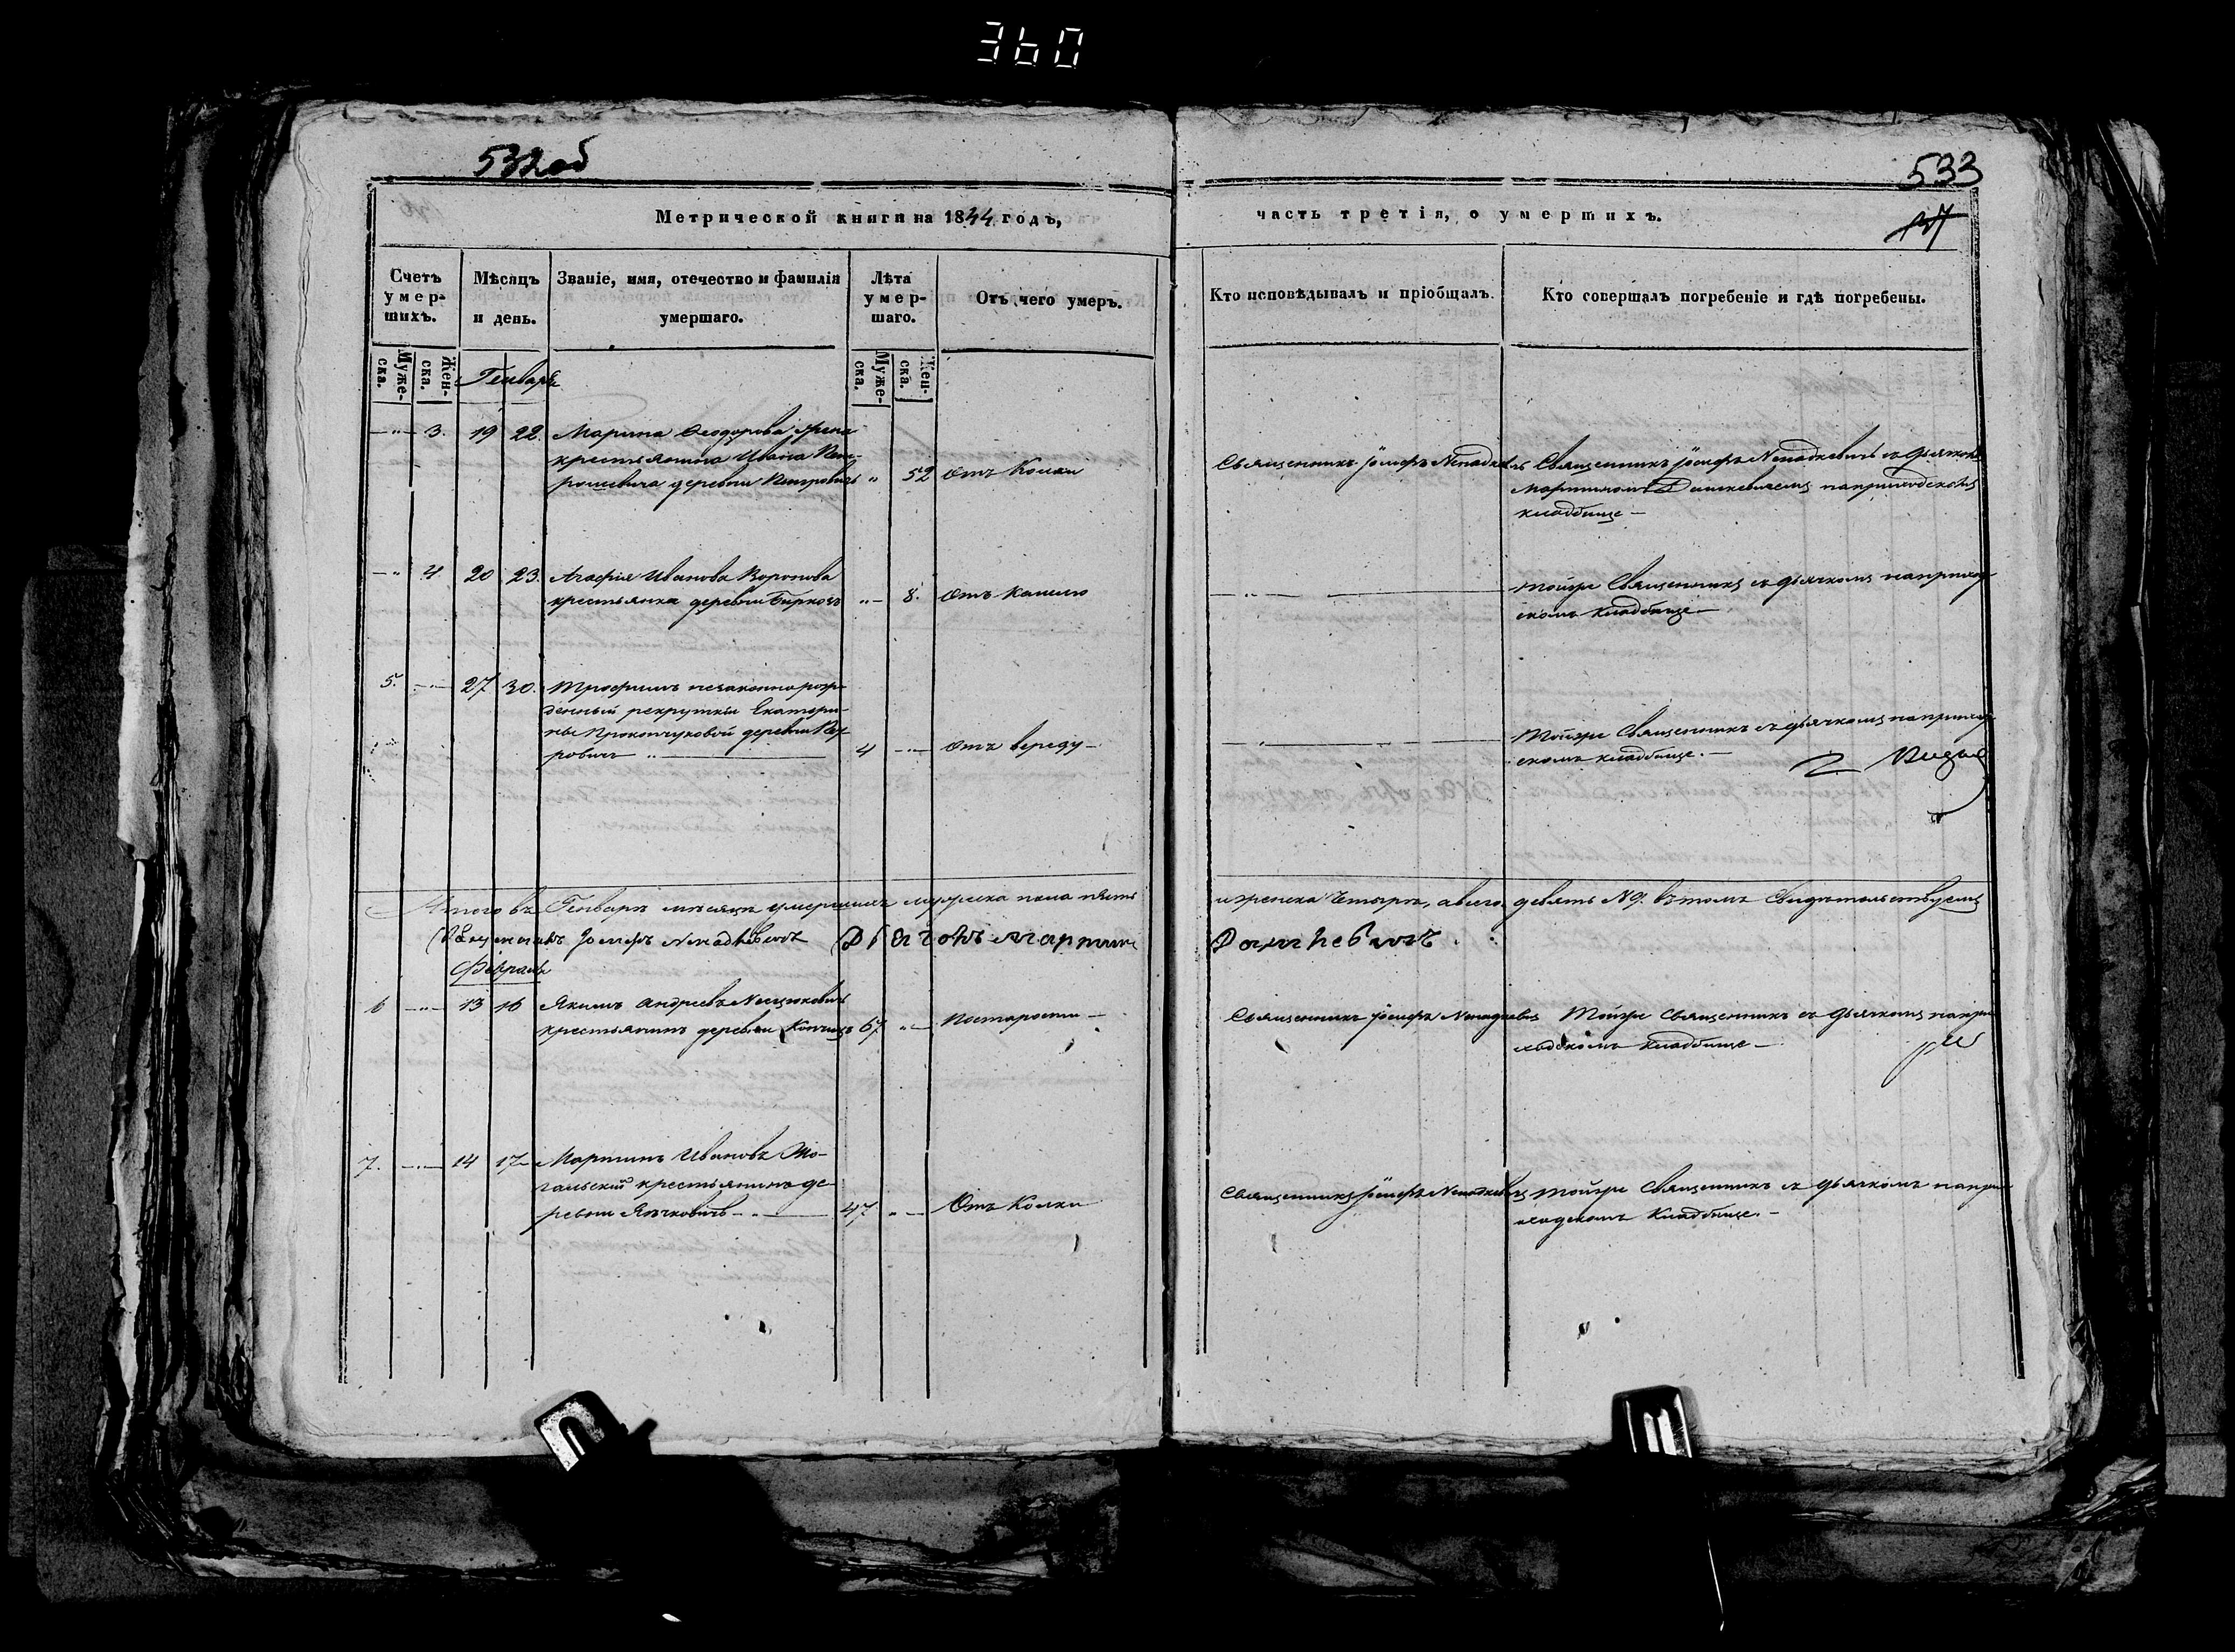 360
532об
533
Метрической книги на 1844 годъ,
часть третія, о умершихъ.
137
Счетъ умер-шихъ.
Мѣсяцъ и день.
Званіе, имя, отечество и фамилія умершаго.
Лѣта умер-шаго.
Отъ чего умеръ.
Кто исповѣдывалъ и пріобщалъ.
Кто совершалъ погребеніе и гдѣ погребены.
Муже-ска.
Жен-ска.
Муже-ска.
Жен-ска.
Генварь
3. 19 22. Марина Ѳеодорова жена
крестьянина Ивана
деревни Петровичъ " 52 отъ Колки
Священникъ Іосифъ Ненадкевичъ
Священникъ Іосифъ Ненадкевичъ съ дьячкомъ
Мартиномъ Дашкевичемъ наприходскомъ
кладбище
4 20 23. Агафія Иванова Воропова
крестьянка деревни Бирковъ 8. отъ кашлю
тойже Священникъ съ дьячкомъ наприход
скомъ кладбище
5. 27 30. Трофимъ незаконнорож
денный рекрутки Екатери
ны Прокопчуковой деревни Пет
ровичъ 4 отъ вереду
Тойже Священникъ съ дьячкомъ наприход
скомъ кладбище.
Видѣлъ
Итого въ Генварѣ мѣсяцѣ умершихъ мужеска пола пять
и женска Четыре, авсего девять №9. вътомъ Свидѣтельствуемъ
Священникъ Іосифъ Ненадкевичъ Дьячокъ Мартинъ
Дашкевичъ.
Февраль
6 13 16 Якимъ Андреевъ
крестьянинъ деревни 67 Постарости
Священникъ Іосифъ Ненадкевичъ
Тойже Священникъ съ Дьячкомъ напри
ходскомъ кладбище
7. 14 17 Мартинъ Ивановъ Жо-
гальскій крестьянинъ де-
ревни Ячковичъ 47 Отъ Колки
Священникъ Іосифъ Ненадкевичъ
тойже Священникъ съ Дьячкомъ напри
ходскомъ Кладбище.